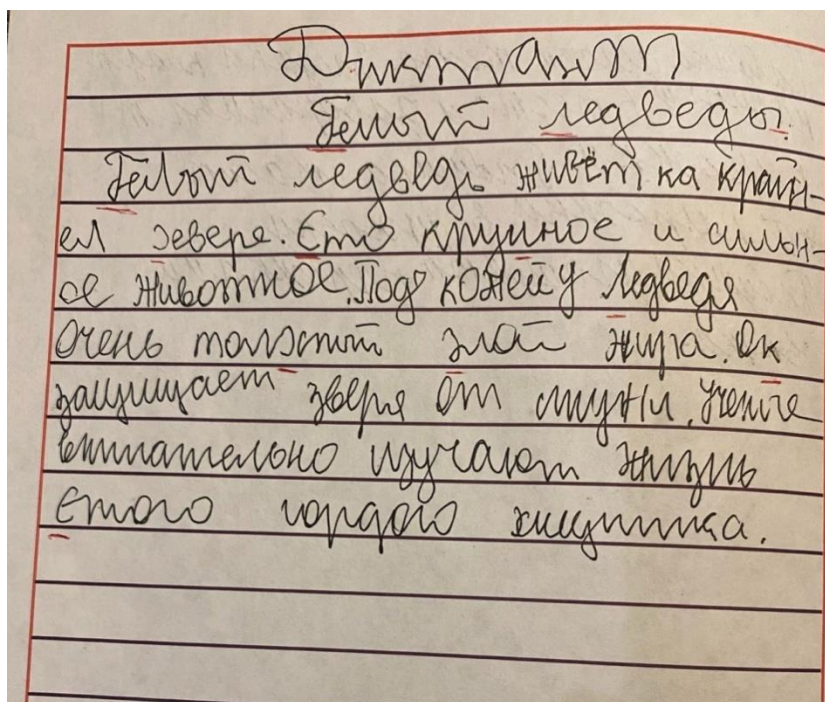 Диктант
Гелый ледведы.
Гелый ледведь живёт ка край-
ел эевере. Єто крупное и сильн-
ое животное. Под кожей у ледведя
очень толэтый злой жира. Ок
защищает зверя от стужи. Учение
внимательно изучают жизнь
Єтого гордого хищника.